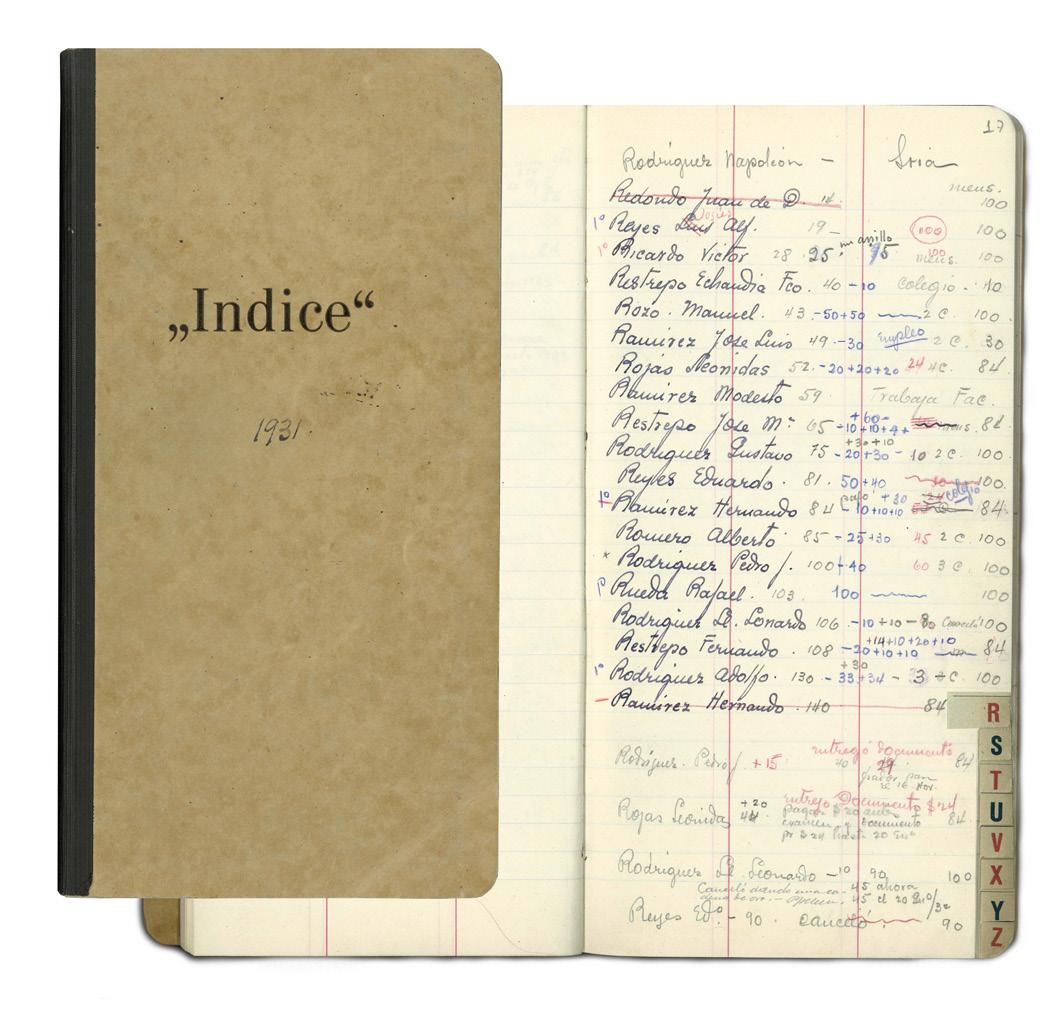 „Indice“
1931.
17
Rodríguez Napoleón — Sria
mens.
Redondo Juan de D. 14. 100
1º Reyes Luis Alf. 19 — 100 100
1º Ricardo Victor 28 25. 75 100 mens. 100
Restrepo Echandia Fco. 40 - 10 Colegio - 40
Rozo. Manuel. 43 - 50 + 50 2 C. 100.
Ramírez Jose Luis 49 - 30 Empleo 2 C. 30
Rojas Leonidas 52. - 20 + 20 + 20 24 4C. 84
Ramírez Modesto 59 Trabaja Fac.
+ 60 -
Restrepo Jose Mª 65 - 10 + 10 + 4 + mens. 84
+ 30 + 10
Rodriguez Gustavo 75 - 20 + 30 - 10 2 C. 100.
Reyes Eduardo. 81. 50 + 40 10 100.
+ 30 24 colegio
1º Ramírez Hernando 84 - 10 + 10 + 10 84
Romero Alberto 85 - 25 + 30 45 2 C. 100
x Rodriguez Pedro J. 100 + 40 60 3 C. 100
Rueda Rafael. 103. 100 100
Rodríguez Ll. Lonardo 106. - 10 + 10 - 80 Canceló 100
+ 14 + 10 + 20 + 10
Restrepo Fernando. 108 - 20 + 10 + 10 84
+ 30
1º Rodríguez Adolfo. 130 - 33 + 34 - 3 C. 100
- Ramírez Hernando 140 84
R
S
T
U
V
X
Y
Z
entregó documento
Rodríguez. Pedro J. + 15 40 29 84
el 16 Nov.
+ 20 entrego Documento $ 24
Rojas Leonidas 44 pagar $ 20 antes 84
examen y documento
pr $ 24 hasta 20 Enº
Rodríguez Ll. Leonardo - 10 90 100
Canceló dando una 45 ahora
45 el 20 Enº/32
Reyes Edº. - 90. canceló. 90